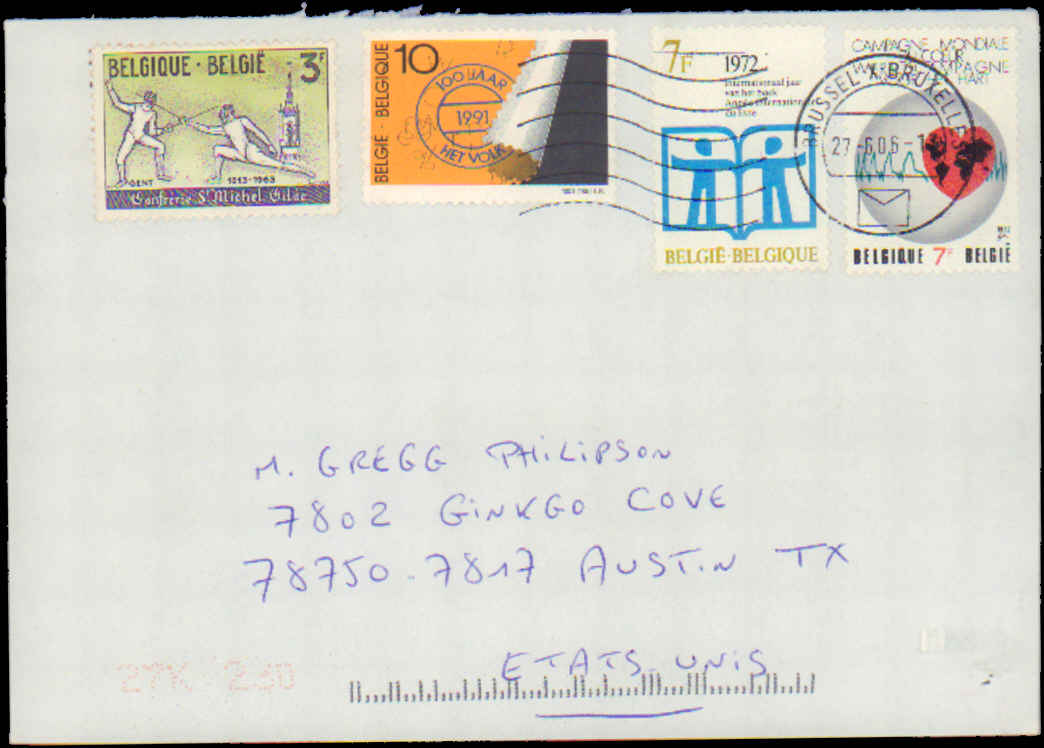 BELGIQUE · BELGIË 3F
GENT
1613-1963
Confrerie St Michel Gilde
10
BELGIË · BELGIQUE
100 JAAR
1991
HET VOLK
7F 1972
Internationaal jaar
van het boek
Année internationale
du livre
BELGIË·BELGIQUE
CAMPAGNE MONDIALE
BRUSSEL X BRUXELLES
BELGIQUE 7F BELGIË
M. GREGG PHILIPSON
7802 GINKGO COVE
78750-7817 AUSTIN TX
ETATS-UNIS
27K 230